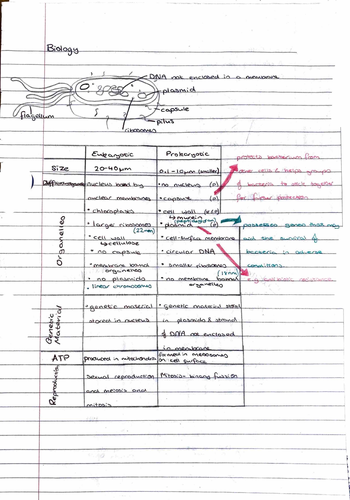 Biology
DNA not enclosed in a membrane
plasmid
capsule
pilus
flagellum
ribosomes
Eukaryotic
Prokaryotic
Size
20-40μm
0.1-10μm (smaller)
Organelles
nucleus bound by
nuclear membranes
• chloroplasts
• larger ribosomes
(22nm)
• cell wall
↳ cellulose
• no capsule
• membrane bound
organelles
• no plasmids
• linear chromosomes
• no nucleus
• capsule
• cell wall
↳ murein
(peptidoglycan)
• plasmid
• cell-surface membrane
• circular DNA
• smaller ribosomes
(18nm)
• no membrane bound
organelles
protects bacterium from
other cells & helps groups
of bacteria to stick together
for further protection
possession genes that may
aid the survival of
bacteria in adverse
conditions.
Genetic
Material
• genetic material
stored in nucleus
• genetic material stored
in plasmids & strand
& DNA not enclosed
in membrane
ATP
produced in mitochondria
formed in mesosomes
on cell surface
Reproduction
Sexual reproduction
and meiosis and
mitosis